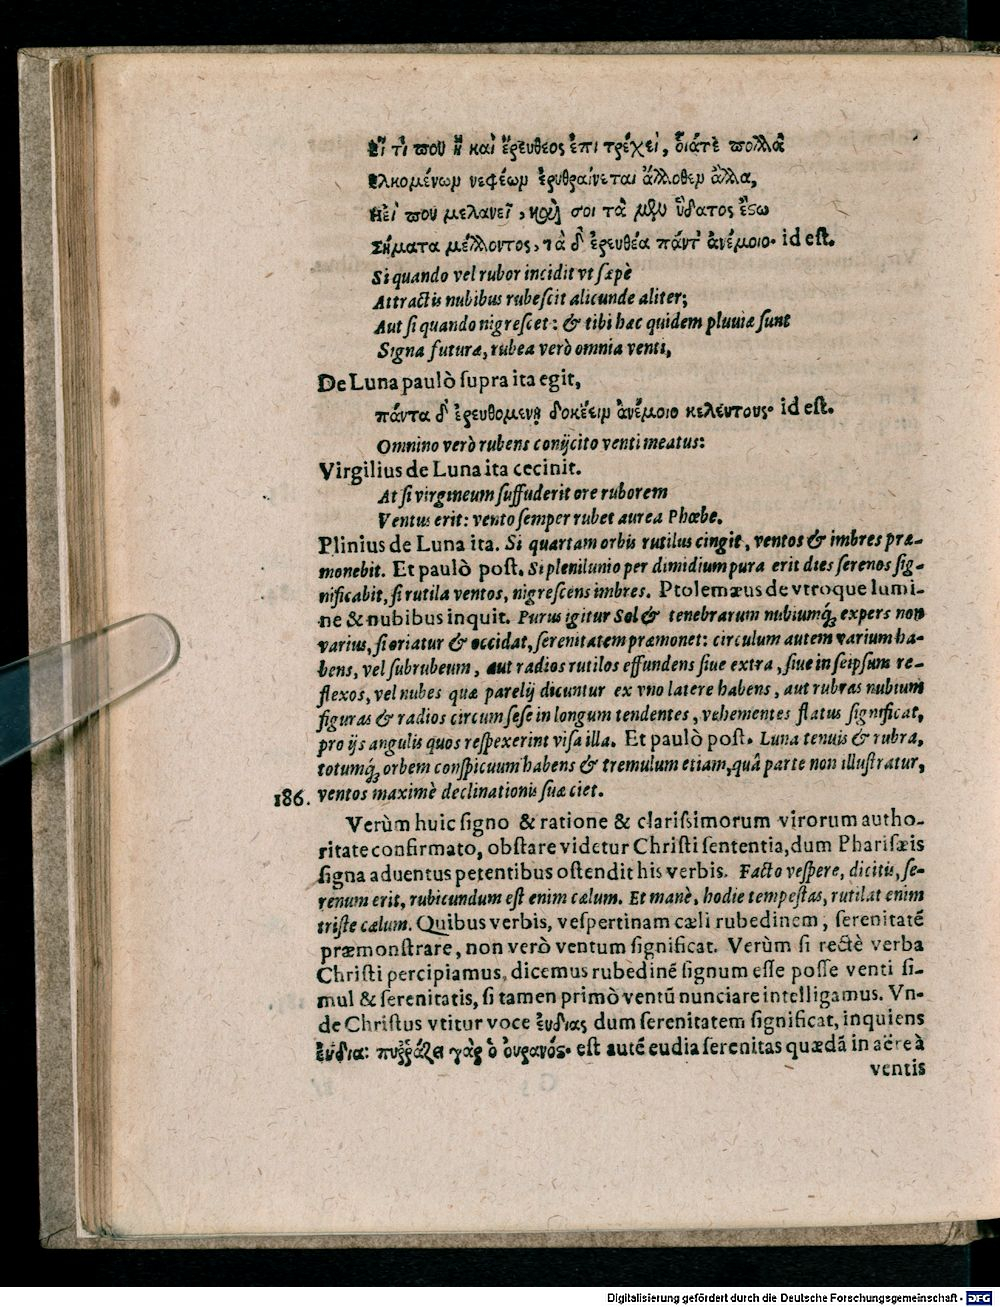 Εἴ τί που ἢ καὶ ἔρευθεος ἐπι τρέχει, οἷάτὲ πολλὰ
Ελκομένων νεφέων ἐρυθραίνεται ἄλλοθεν ἄλλα,
Ηεἴ που μελανεῖ, καί σοι τὰ μὲν ὕδατος ἔστω
Σήματα μέλλοντος, τὰ δ' ἐρευθέα πάντ' ἀνέμοιο· id est.
Si quando vel rubor incidit vt sæpè
Attractis nubibus rubescit alicunde aliter;
Aut si quando nigrescet: & tibi hac quidem pluuiæ sunt
Signa futuræ, rubea verò omnia venti,
De Luna paulò supra ita egit,
πάντα δ' ἐρευθομένῃ δοκέειν ἀνέμοιο κελέυτους· id est.
Omnino verò rubens conijcito venti meatus:
Virgilius de Luna ita cecinit.
At si virgineum suffuderit ore ruborem
Ventus erit: vento semper rubet aurea Phœbe.
Plinius de Luna ita. Si quartam orbis rutilus cingit, ventos & imbres præ-
monebit. Et paulò post. Si plenilunio per dimidium pura erit dies serenos sig-
nificabit, si rutila ventos, nigrescens imbres. Ptolemæus de vtroque lumi-
ne & nubibus inquit. Purus igitur Sol & tenebrarum nubiumq́; expers non
varius, si oriatur & occidat, serenitatem præmonet: circulum autem varium ha-
bens, vel subrubeum, aut radios rutilos effundens siue extra, siue in seipsum re-
flexos, vel nubes quæ parelij dicuntur ex vno latere habens, aut rubras nubium
figuras & radios circum sese in longum tendentes, vehementes flatus significat,
pro ijs angulis quos respexerint visa illa. Et paulò post. Luna tenuis & rubra,
totumq́; orbem conspicuum habens & tremulum etiam, quâ parte non illustratur,
186. ventos maximè declinationis suæ ciet.
Verùm huic signo & ratione & clarissimorum virorum autho-
ritate confirmato, obstare videtur Christi sententia, dum Pharisæis
signa aduentus petentibus ostendit his verbis. Facto vespere, dicitis, se-
renum erit, rubicundum est enim cælum. Et manè, hodie tempestas, rutilat enim
triste cælum. Quibus verbis, vespertinam cæli rubedinem, serenitatē
præmonstrare, non verò ventum significat. Verùm si rectè verba
Christi percipiamus, dicemus rubedinē signum esse posse venti si-
mul & serenitatis, si tamen primò ventū nunciare intelligamus. Vn-
de Christus vtitur voce ἐυδιας dum serenitatem significat, inquiens
ἐυδια: πυῤῥάζει γὰρ ὁ ὀυρανός· est autē eudia serenitas quædā in aëre à
ventis
Digitalisierung gefördert durch die Deutsche Forschungsgemeinschaft - DFG